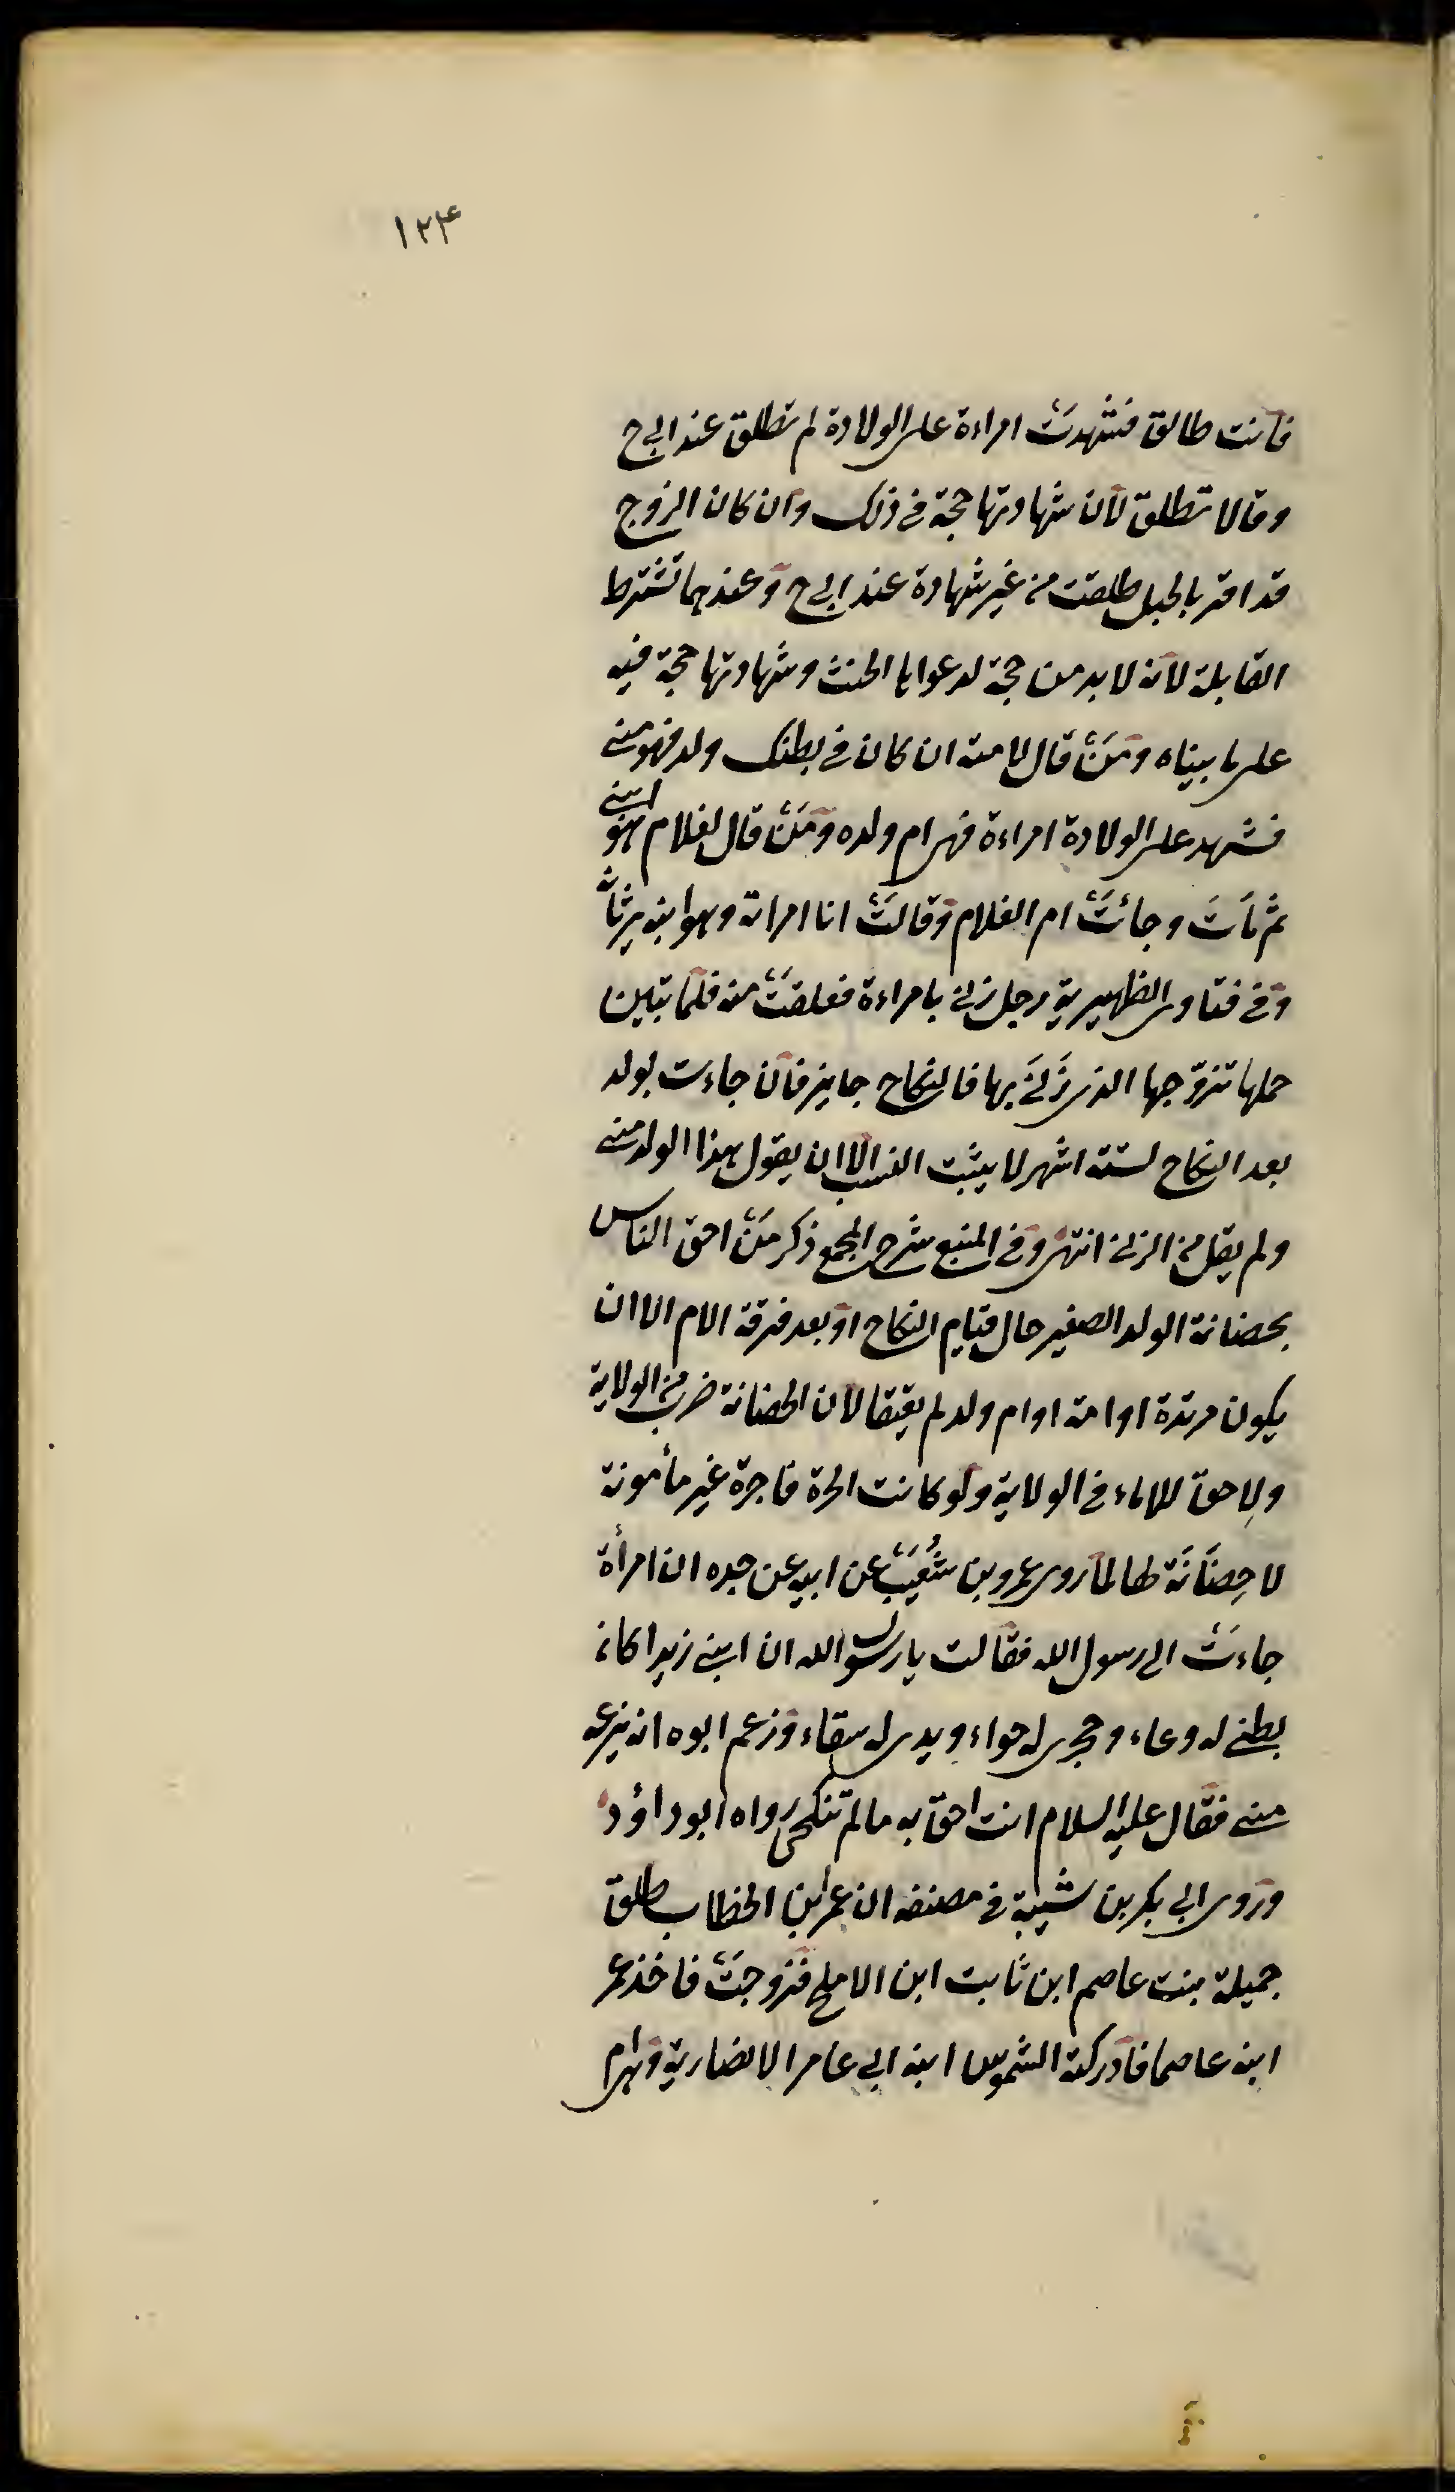 ١٢٤
فانت طالق فشهدت امراءة على الولادة لم تطلق عند ابي ح
وقالا تطلق لان شهادتها حجة في ذلك وان كان الزوج
قد اقر بالحبل طلقت من غير شهادة عند ابي ح وعندهما تشترط
القابلة لانه لا بد من حجة لدعواها الحنث وشهادتها حجة فيه
على ما بيناه ومن قال لامته ان كان في بطنك ولد فهو مني
فشهد على الولادة امراءة فهي ام ولده ومن قال لغلام هو ابني
ثم مات وجائت ام الغلام وقالت انا امراته وهو ابنه يرثانه
وفي فتاوى الظهيرية رجل زنى بامراءة فعلقت منه فلما تبين
حملها تزوّجها الذى زنى بها فالنكاح جايز فان جاءت بولد
بعد النكاح لستة اشهر لا يثبت النسب الا ان يقول هذا الولد مني
ولم يقل من الزنى انتهى وفي المنبع شرح المجمع ذكر من احق الناس
بحضانة الولد الصغير حال قيام النكاح او بعد فرقة الام الا ان
يكون مرتدة او امة او ام ولد لم يعتقا لان الحضانة ضرب من الولاية
ولا حق للاماء في الولاية ولو كانت الحرة فاجرة غير مأمونة
لا حِضَانَة لها لما روى عمرو بن شُعَيب عن ابيه عن جده ان امرأة
جاءت الى رسول الله فقالت يا رسول الله ان ابني زيدا كانه
بطني له وعاء وحجرى له حواء ويدى له سقاء وزعم ابوه انه ينزعه
مني فقال عليه السلام انت احق به ما لم تنكحى رواه ابو داؤد
وروى ابي بكر بن شيبة في مصنفه ان عمر ابن الخطاب طلق
جميلة بنت عاصم ابن ثابت ابن الاملح فتزوجت فاخذ عمر
ابنه عاصما فادركته الشموس ابنه ابي عامر الانصارية وهي ام